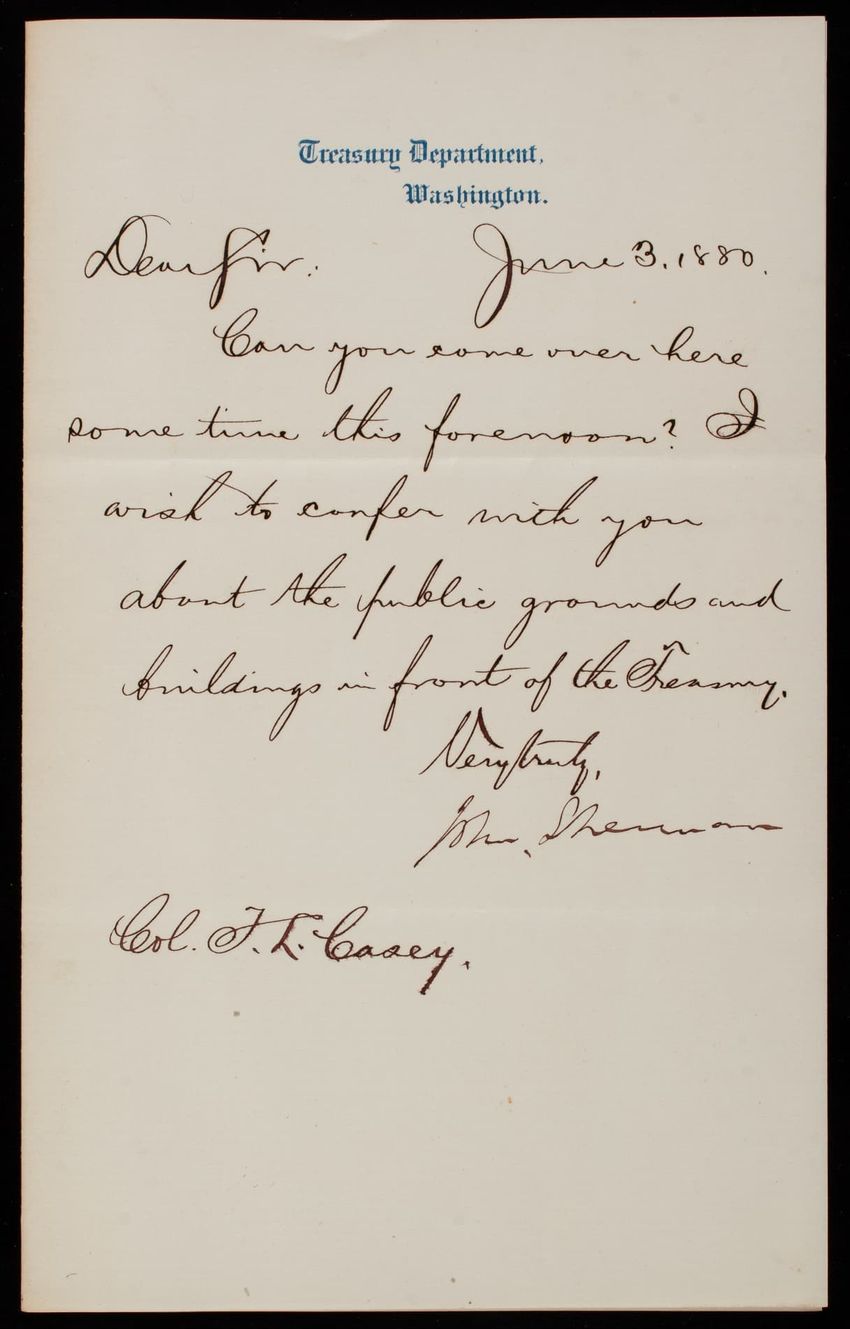 Treasury Department,
Washington.
Dear Sir. June 3. 1880.
Can you come over here
some time this forenoon? I
wish to confer with you
about the public grounds and
buildings in front of the Treasury.
Very truly,
John Sherman
Col. T. L. Casey.